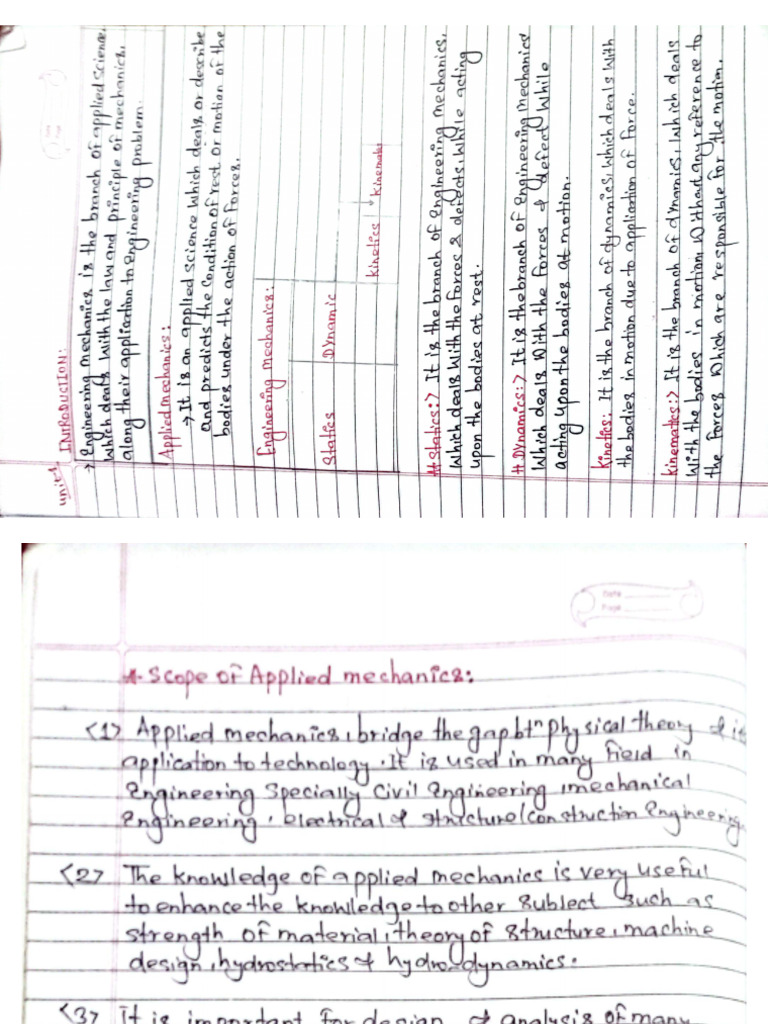 unit 1 INTRODUCTION:
→ Engineering mechanics is the branch of applied science,
which deals with the law and principle of mechanics,
along their application to engineering problem.
Applied mechanics:
→ It is an applied science which deals or describe
and predicts the condition of rest or motion of the
bodies under the action of forces.
Engineering mechanics:
Statics Dynamic
Kinetics Kinematic
# Statics:> It is the branch of engineering mechanics,
which deals with the forces & defects, while acting
upon the bodies at rest.
# Dynamics:> It is the branch of Engineering mechanics
which deals with the forces & defect while
acting upon the bodies at motion.
Kinetics: It is the branch of dynamics, which deals with
the bodies in motion due to application of force.
kinematics:> It is the branch of dynamics, which deals
with the bodies in motion without any reference to
the forces which are responsible for the motion.
Date
Page
* Scope of Applied mechanics:
<1> Applied mechanics, bridge the gap btⁿ physical theory & is
application to technology. It is used in many field in
Engineering Specially Civil Engineering, mechanical
Engineering, electrical & structure/construction Engineering
<2> The knowledge of applied mechanics is very useful
to enhance the knowledge to other sublect such as
strength of material, theory of structure, machine
design, hydrostatics & hydro-dynamics.
<3> It is important for design & analysis of many